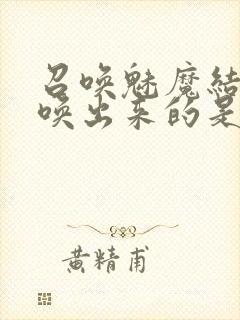 召唤魅魔结
唤出来的是
黄精甫